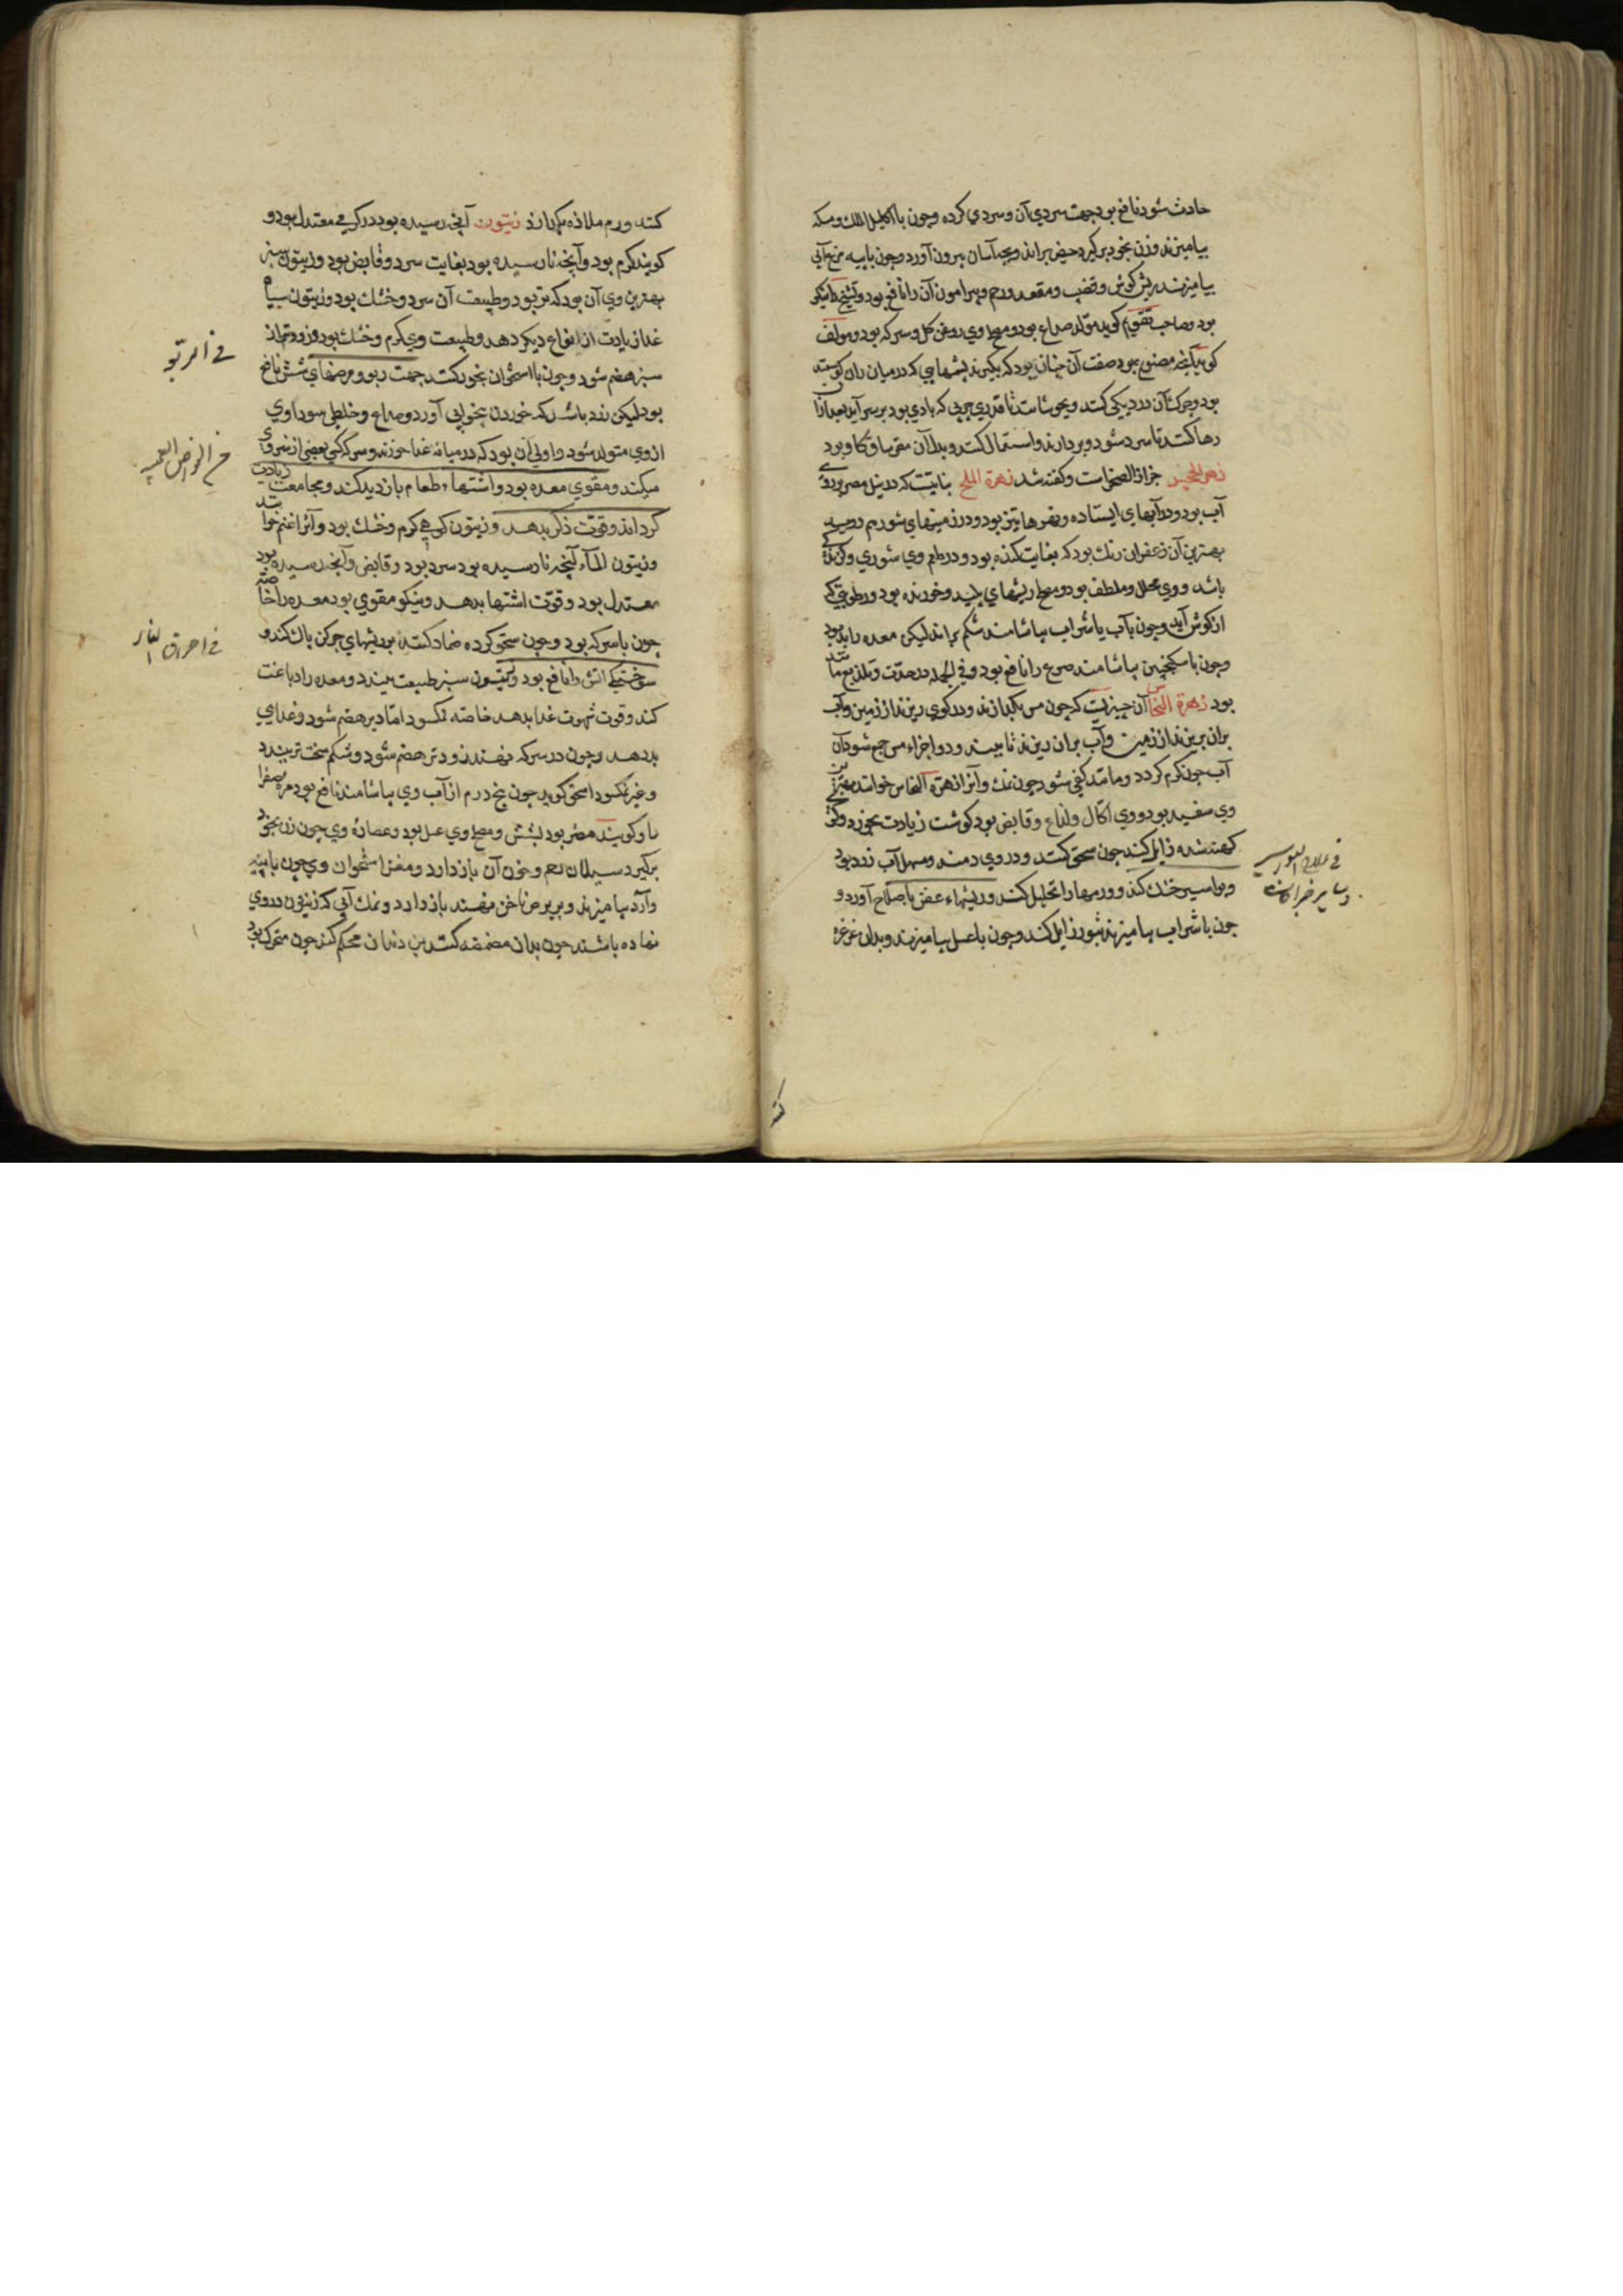 حادث شود نافع بود جهت سردی آن و سردی کرده و چون با اکلیل الملک و مسکه
بیامیزند و زن بخود برگیرد حیض براند و بچه آسان بیرون آورد و چون با پیه مرغ آبی
بیامیزند ریش گوش و قضیب و مقعد و رم و پیرامون آن را نافع بود و تشنج را نیکو
بود و صاحب تقویم گوید مولد صداع بود و مصلح وی روغن گل و سرکه بود و مولف
گوید آنچه مصنوع بود صفت آن چنان بود که بگیرند پشمهایی که در میان ران گوسفند
بود و چرک آن در دیگی کنند و بجوشانند تا قدری چربی که بادی بود بر سر آید بعد از آن
رها کنند تا سرد شود و بردارند و استعمال کنند و بدل آن مخ ساق گاو بود
زهر الحجر حزاز الصخر است و گفته شد زهرة الملح نباتیست که در نیل مصر بر روی
آب بود و در آبهای ایستاده و نهرها نیز بود و در زمینهای شور هم
بهترین آن زعفرانی رنگ بود که بغایت گنده بود و در طعم وی شوری و گزندگی
باشد و وی محلل و ملطف بود و مصلح ریشهای پلید و خورنده بود و رطوبتی که
از گوش آید و چون با آب یا شراب بیاشامند شکم براند لیکن معده را بد بود
و چون با سکنجبین بیاشامند صرع را نافع بود و فی الجمله در حدت و تلذیع مانند
بود زهرة النحاس آن چیزیست که چون مس بگدازند و در گوی ریزند از زمین و آب
بران بریزند از زمین و آب بران ریزند تا ببندد و اجزاء مس جمع شود آن
آب چون گرم گردد و مانند کفی شود چون نمک و آنرا زهرة النحاس خوانند بهترین
وی سفید بود و وی اکال و لذاع و قابض بود گوشت زیادت بخورد و کری
کهنه شده زایل کند چون سحق کنند و در وی دمند و مسهل آب زرد بود
و بواسیر خشک کند و ورمها را تحلیل کند و ریشهاء عفن باصلاح آورد و
چون با شراب بیامیزند بثور زایل کند و چون با عسل بیامیزند و بدان غرغره
فی علاج البواسیر
کنند
کنند ورم ملازه بگدازد زیتون آنچه رسیده بود در گرمی معتدل بود و
گویند گرم بود و آنچه نارسیده بود بغایت سرد و قابض بود و زیتون سبز
بهترین وی آن بود که تر بود و طبیعت آن سرد و خشک بود و زیتون سیاه
غذا زیادت از انواع دیگر دهد و طبیعت وی گرم و خشک بود و زودتر از
سبز هضم شود و چون با استخوان بخور کنند جهت ربو و مرضهای شش نافع
بود لیکن زرد باشد که خوردن بیخوابی آورد و صداع و خلطی سوداوی
از وی متولد شود و اولی آن بود که در میانه غذا خورند و سرکه کی بعضی از ضرر وی
میکند و مقوی معده بود و اشتهاء طعام بازدید کند و مجامعت زیادت
گرداند و قوت ذکر بدهد و زیتون کوهی گرم و خشک بود و آنرا عتم خوانند
و زیتون الماء آنچه نارسیده بود سرد بود و قابض و آنچه رسیده بود
معتدل بود و قوت اشتها بدهد و نیکو مقوی بود معده را خاصه
چون با سرکه بود و چون سحق کرده ضماد کنند بر ریشهای چرکن پاک کند و
سوختگی آتش را نافع بود و زیتون سبز طبیعت ببندد و معده را دباغت
کند و قوت شهوت غذا بدهد خاصه نمکسود اما دیر هضم شود و غذای
بد دهد و چون در سرکه نهند زودتر هضم شود و شکم سخت تر ببندد
و غیر نمکسود اسحق گوید چون پنج درم از آب وی بیاشامند نافع بود مره صفرا
را و گویند مضر بود بشش و مصلح وی عسل بود و عصاره وی چون زن بخود
برگیرد سیلان رحم و خون آن باز دارد و مغز استخوان وی چون با پیه
و آرد بیامیزند و بر برص ناخن نهند باز دارد و نمک آبی که زیتون در وی
نهاده باشند چون بدان مضمضه کنند بن دندان محکم کند چون متحرک بود
فی الربو
فی احراق النار